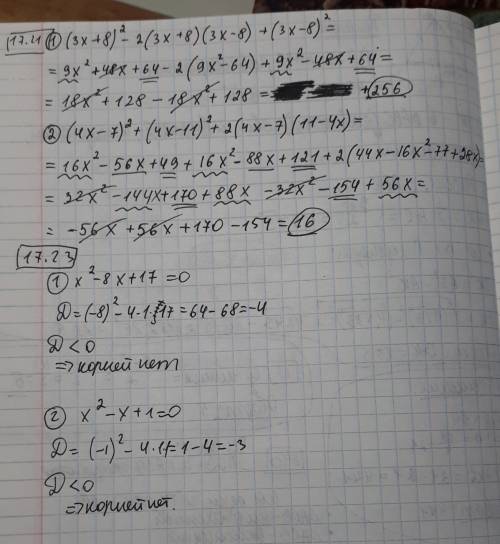 17.21 ① (3x+8)² - 2(3x+8)(3x-8) + (3x-8)² =
= 9x² + 48x + 64 - 2(9x² - 64) + 9x² - 48x + 64 =
= 18x² + 128 - 18x² + 128 = + 256
② (4x-7)² + (4x-11)² + 2(4x-7)(11-4x) =
= 16x² - 56x + 49 + 16x² - 88x + 121 + 2(44x - 16x² - 77 + 28x) =
= 32x² - 144x + 170 + 88x - 32x² - 154 + 56x =
= -56x + 56x + 170 - 154 = 16
17.23
① x² - 8x + 17 = 0
D = (-8)² - 4·1·17 = 64 - 68 = -4
D < 0
⇒ корней нет
② x² - x + 1 = 0
D = (-1)² - 4·1 = 1 - 4 = -3
D < 0
⇒ корней нет.